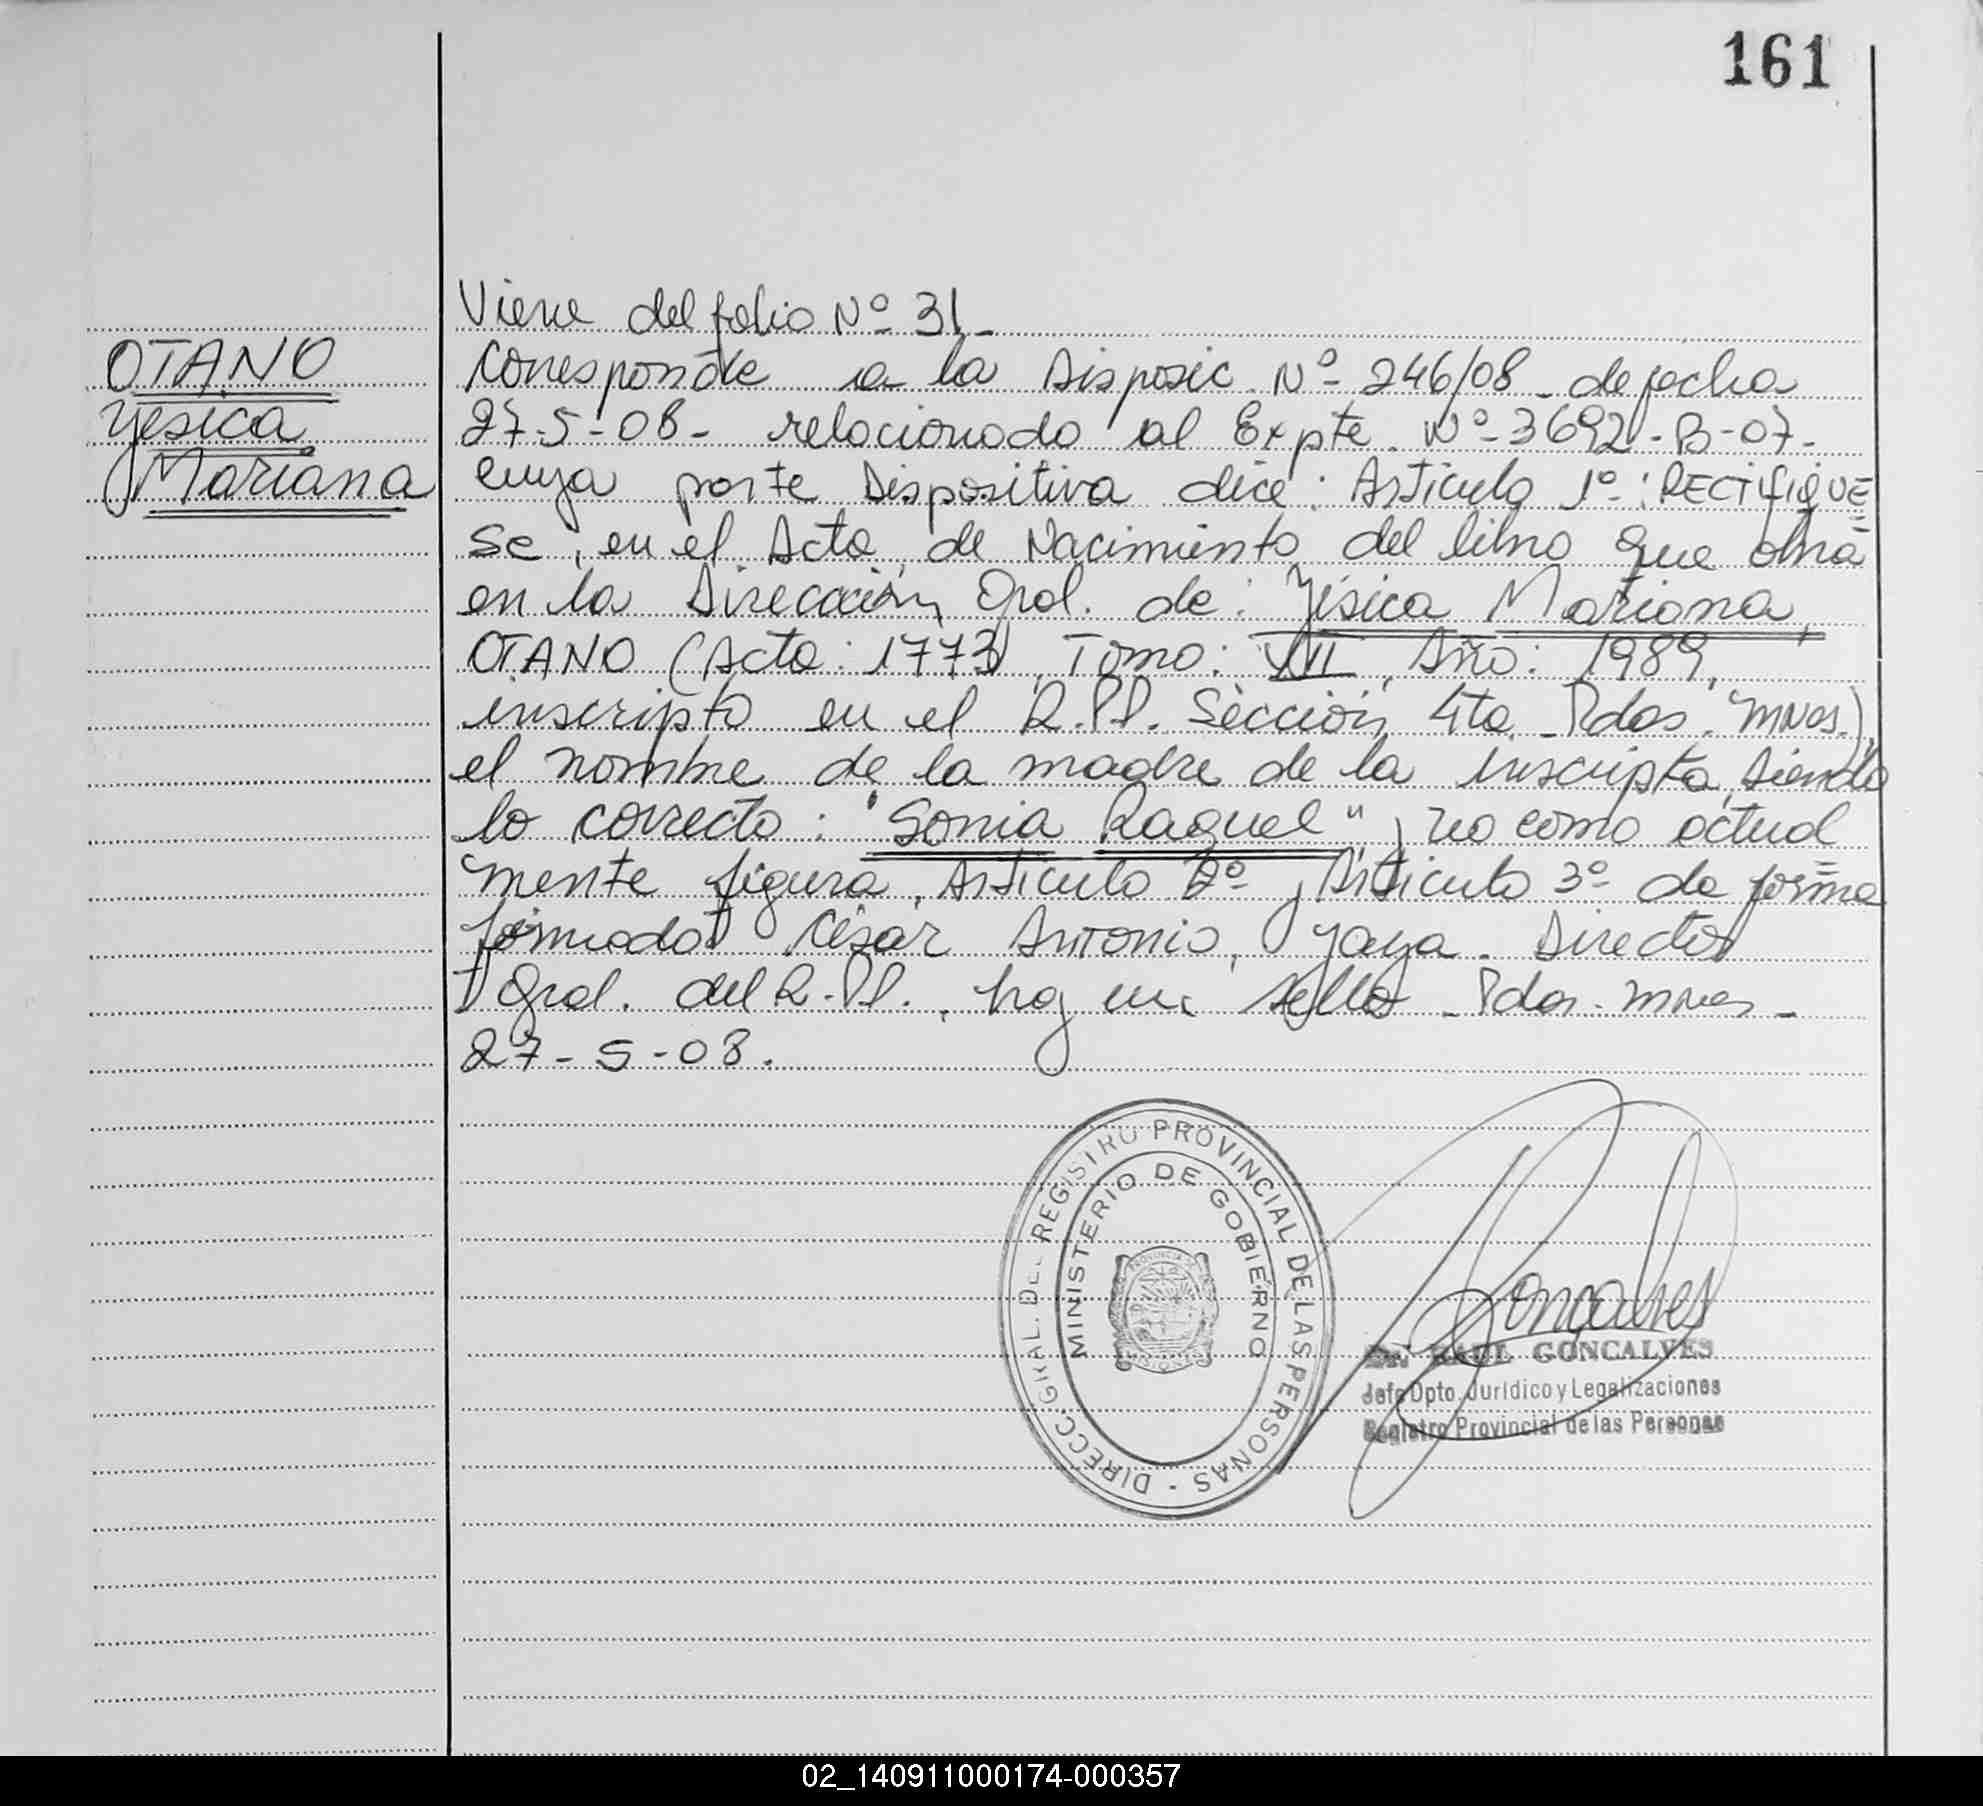 161
Viene del folio Nº 31-
OTANO
Yesica
Mariana
Corresponde a la Disposic. Nº 246/08 de fecha
27-5-08- relacionado al Expte. Nº-3692-B-07-
cuya parte Dispositiva dice: Artículo 1º: RECTIFIQUE=
se, en el Acta de Nacimiento del libro que obra=
en la Dirección Gral. de: Yésica Mariana
OTANO (Acta: 1773, Tomo: VII, Año: 1989,
inscripta en el R.P.P. Sección 4ta. Pdas. Mnes.),
el nombre de la madre de la inscripta, siendo
lo correcto: "Sonia Raquel" y no como actual=
mente figura. Artículo 2º y Artículo 3º de forma
firmado César Antonio Yaya. Director
Gral. del R.P.P.. hay un sello - Pdas. Mnes -
27-5-08.
DIRECC. GRAL. DEL REGISTRO PROVINCIAL DE LAS PERSONAS -
MINISTERIO DE GOBIERNO
PROVINCIA DE
MISIONES
Goncalves
Dr. RAUL GONCALVES
Jefe Dpto. Jurídico y Legalizaciones
Registro Provincial de las Personas
02_140911000174-000357